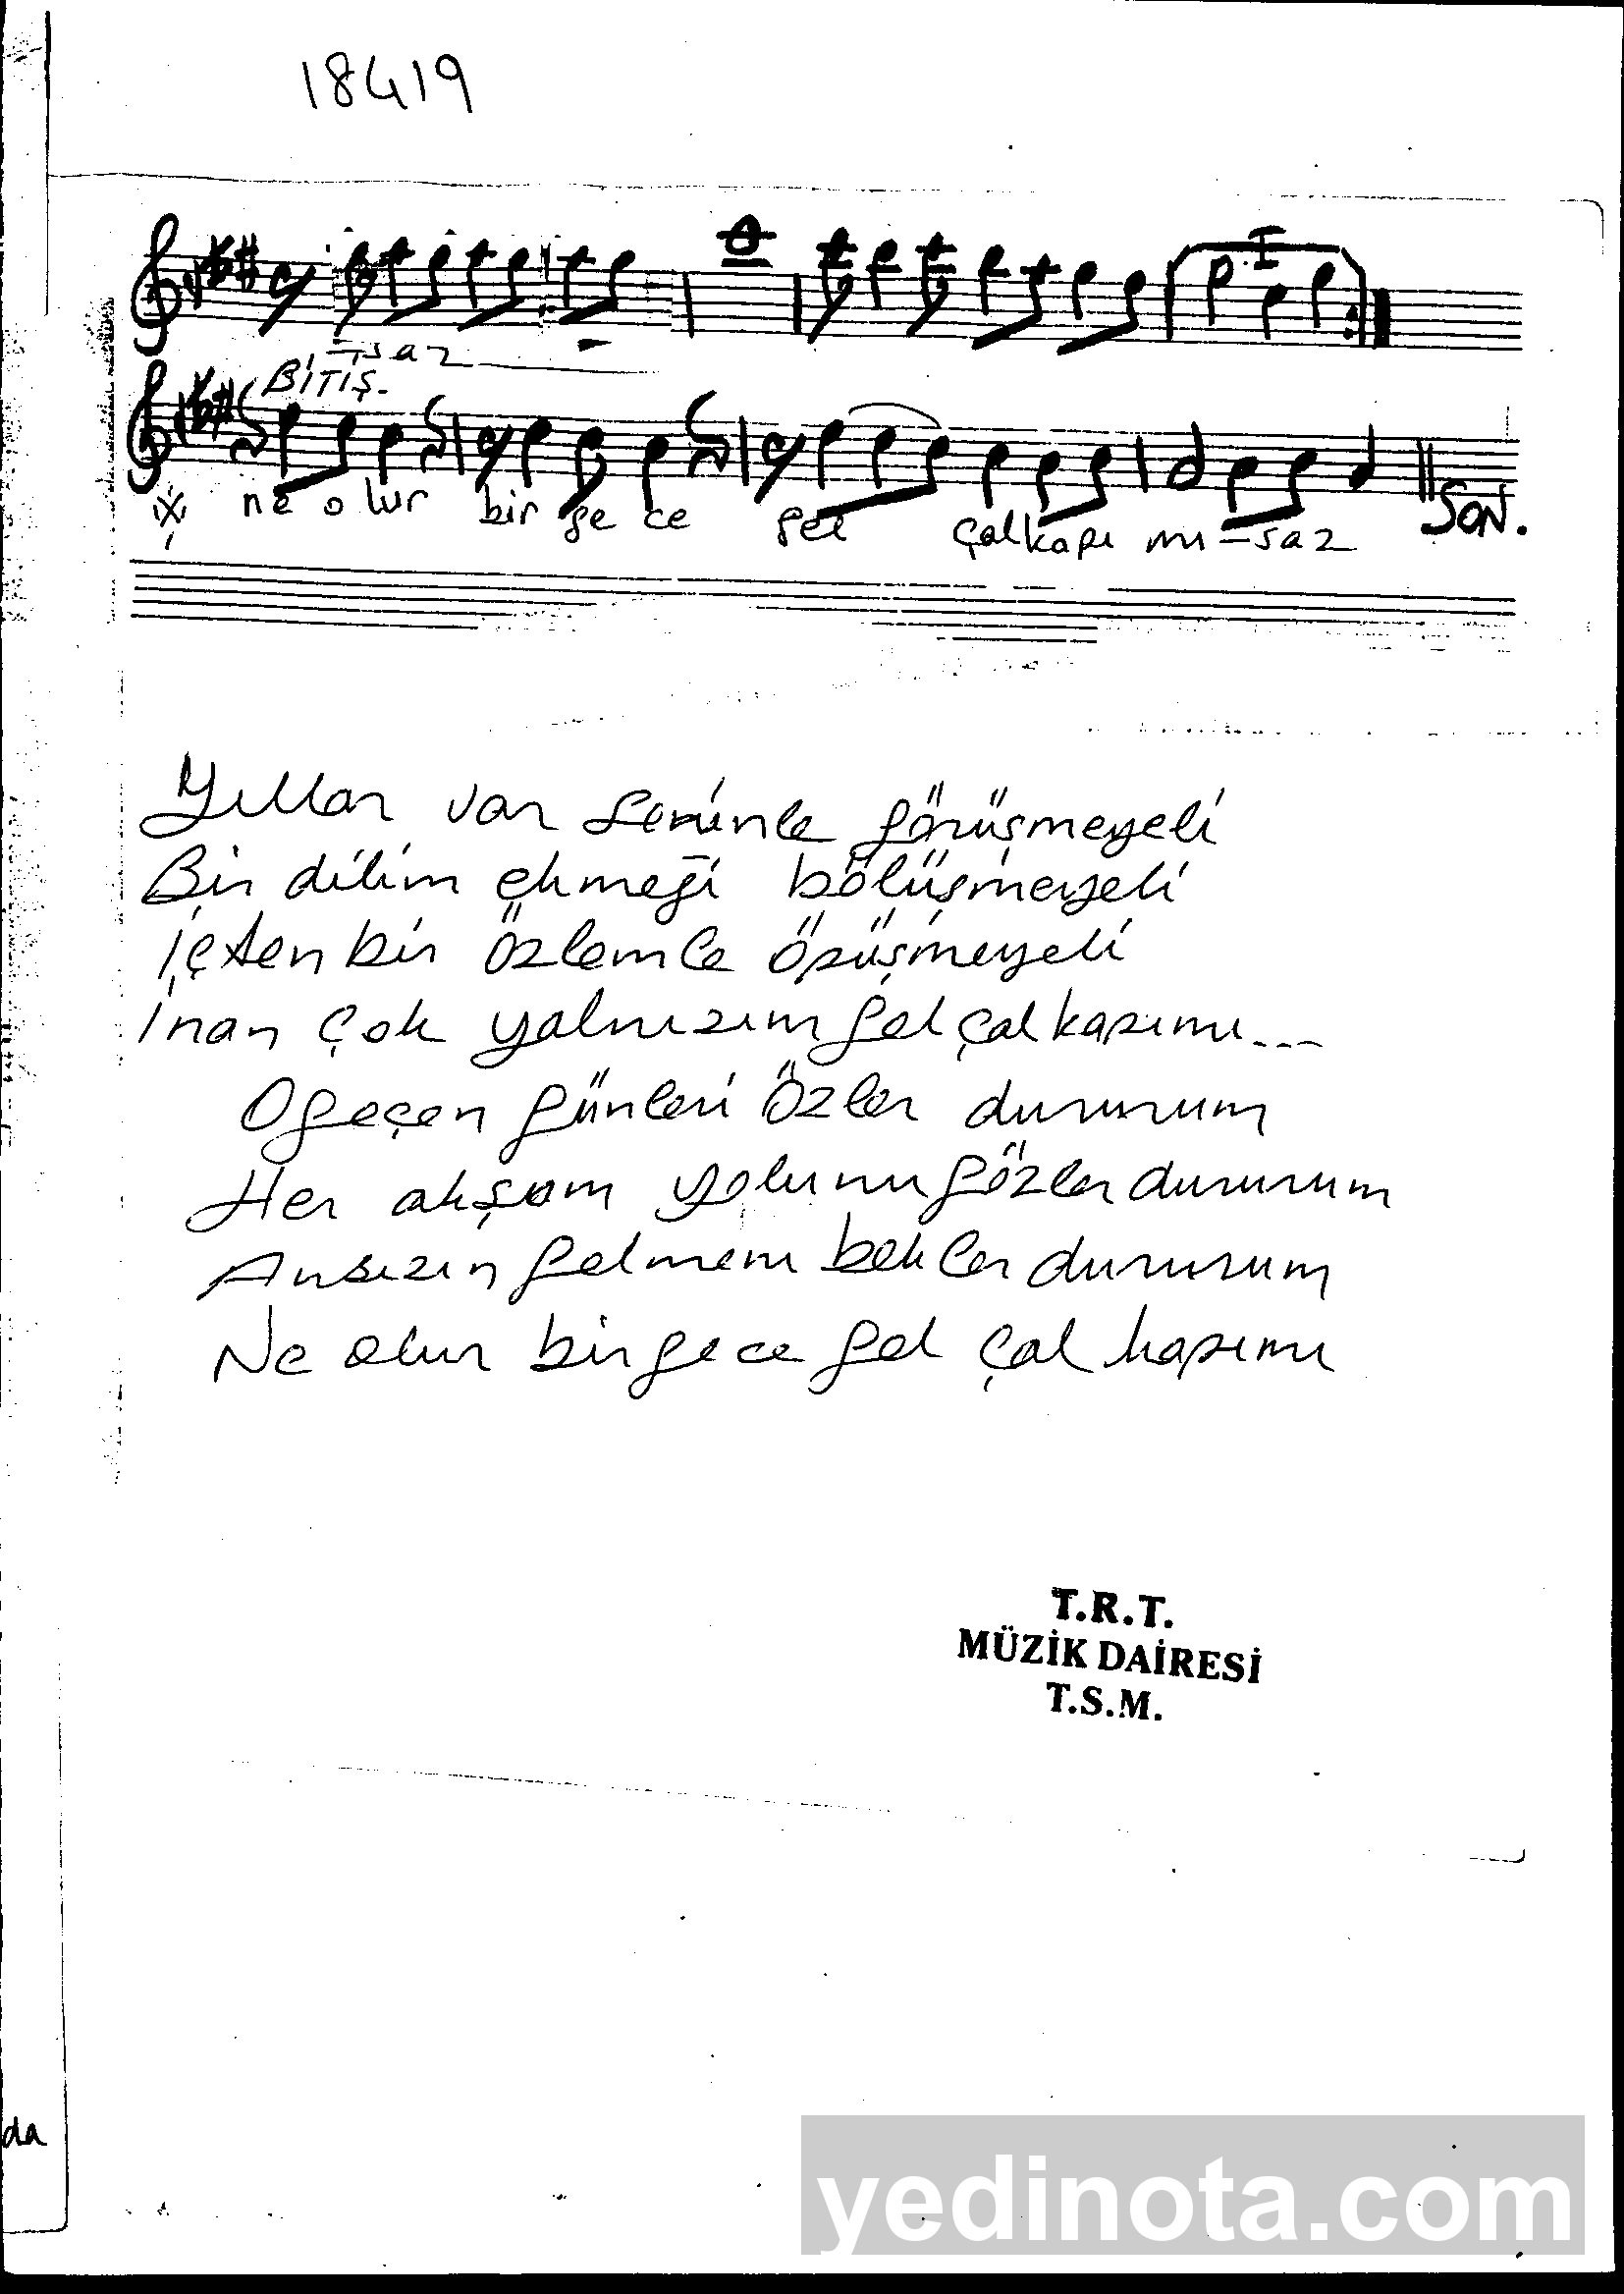 18419
-saz
BİTİŞ.
ne olur bir ge ce gel çal kapı mı -saz SON.
Yıllar var seninle görüşmeyeli
Bir dilim ekmeği bölüşmeyeli
İçten bir özlemle öpüşmeyeli
İnan çok yalnızım gel çal kapımı...
O geçen günleri özler dururum
Her akşam yolunu gözler dururum
Ansızın gelmeni bekler dururum
Ne olur bir gece gel çal kapımı
T.R.T.
MÜZİK DAİRESİ
T.S.M.
da
yedinota.com